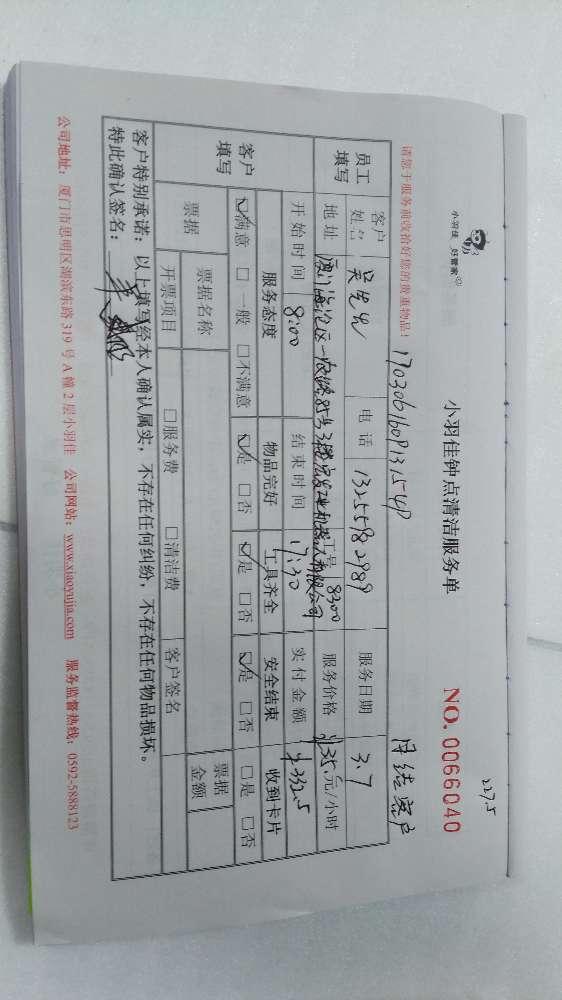 小羽佳 好管家
227.5
小羽佳钟点清洁服务单
NO. 0066040
月结客户
请您于服务前收拾好您的贵重物品！
员工填写
客户姓名
吴先生
电话
13255982989
服务日期
3.7
地址
工号
8300
服务价格
35元/小时
开始时间
8:00
结束时间
17:30
实付金额
¥332.5
客户填写
服务态度
物品完好
工具齐全
安全结束
收到卡片
☑满意 □一般 □不满意
☑是 □否
☑是 □否
☑是 □否
□是 □否
票据
票据名称
票据金额
开票项目
□服务费 □清洁费
客户签名
客户特别承诺：以上填写经本人确认属实，不存在任何纠纷，不存在任何物品损坏。
特此确认签名：
公司地址：厦门市思明区湖滨东路319号A幢2层小羽佳 公司网站：www.xiaoyujia.com 服务监督热线：0592-5888123